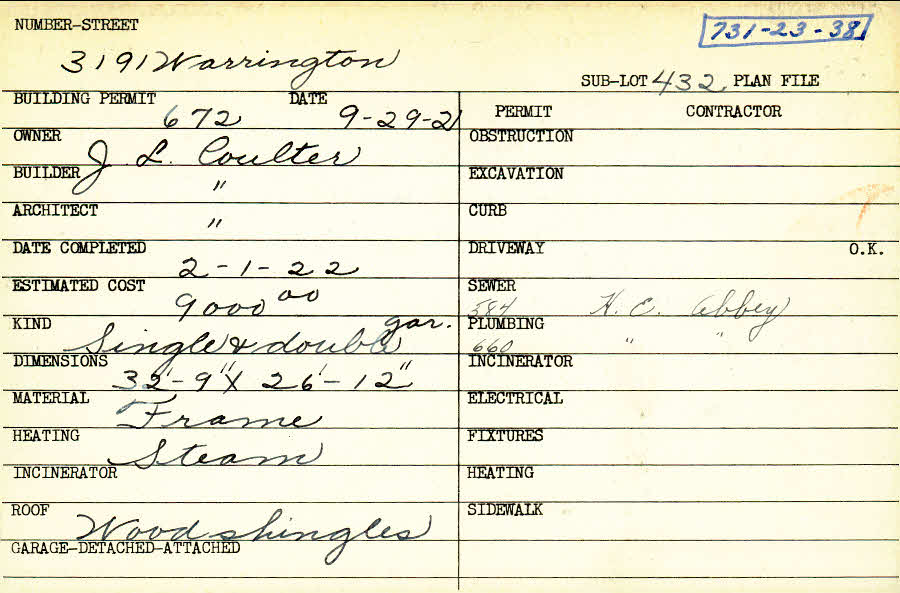 NUMBER-STREET
731-23-38
3191 Warrington
SUB-LOT 432 PLAN FILE
BUILDING PERMIT DATE
672 9-29-21
PERMIT CONTRACTOR
OWNER J. L. Coulter
OBSTRUCTION
BUILDER "
EXCAVATION
ARCHITECT "
CURB
DATE COMPLETED
2-1-22
DRIVEWAY O.K.
ESTIMATED COST
9000 00
SEWER
584 H. E. Abbey
KIND
Single & double gar.
PLUMBING
660 " "
DIMENSIONS
32'-9" X 26'-12"
INCINERATOR
MATERIAL
Frame
ELECTRICAL
HEATING
Steam
FIXTURES
INCINERATOR
HEATING
ROOF
Wood shingles
SIDEWALK
GARAGE-DETACHED-ATTACHED